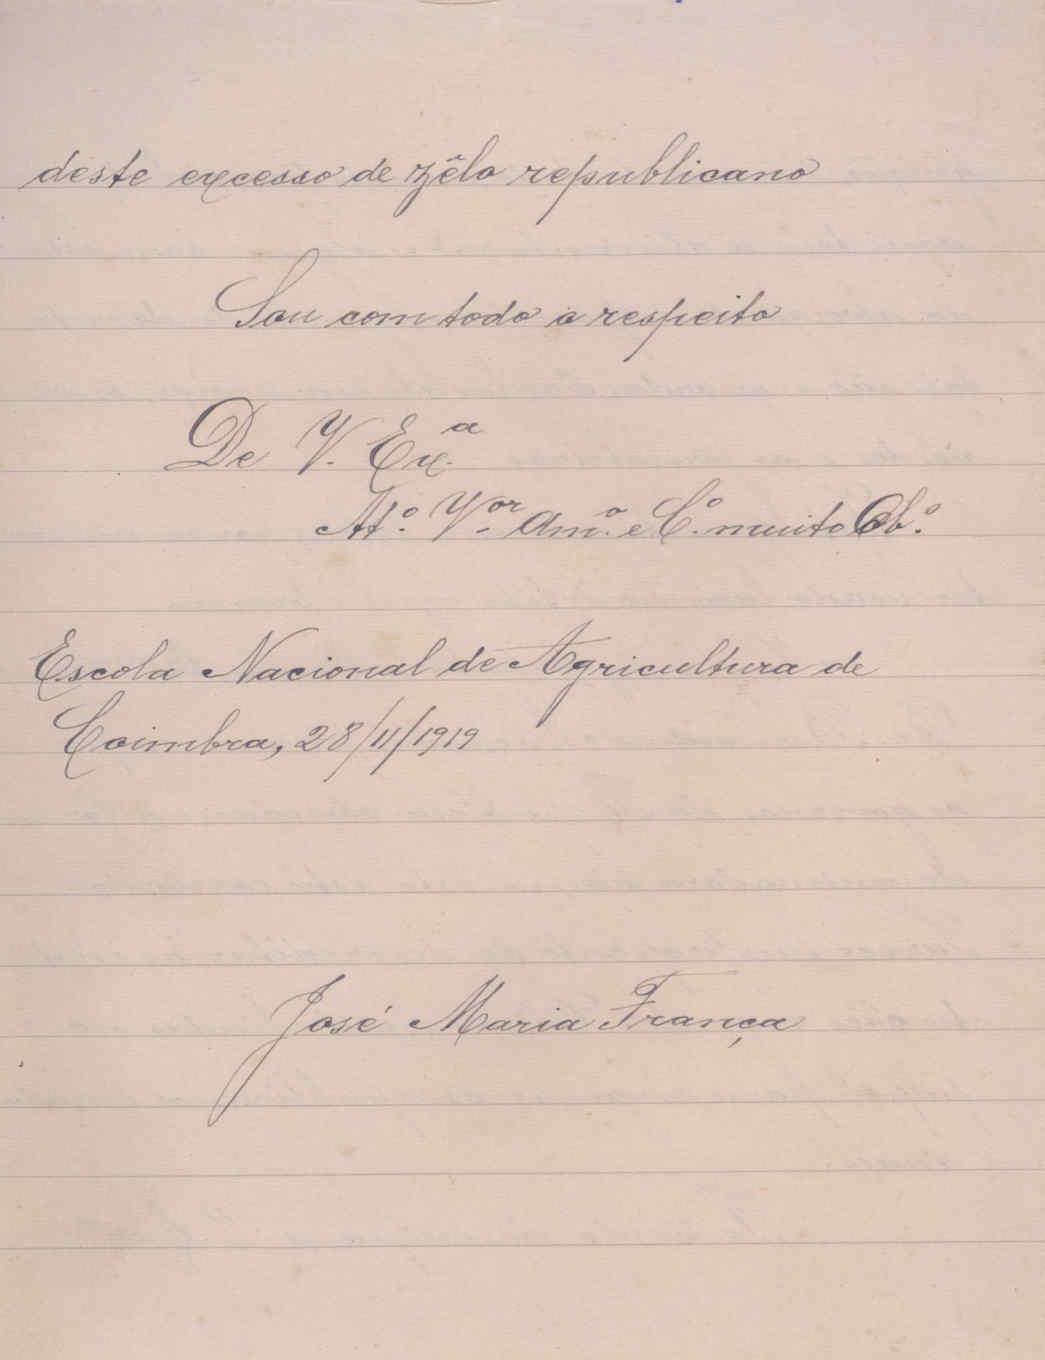 deste excesso de zêlo republicano
Sou com todo o respeito
De V. Ex.ª
At.º V.or Am.º e C.º muito Ob.º
Escola Nacional de Agricultura de
Coimbra, 28/11/1919
José Maria França